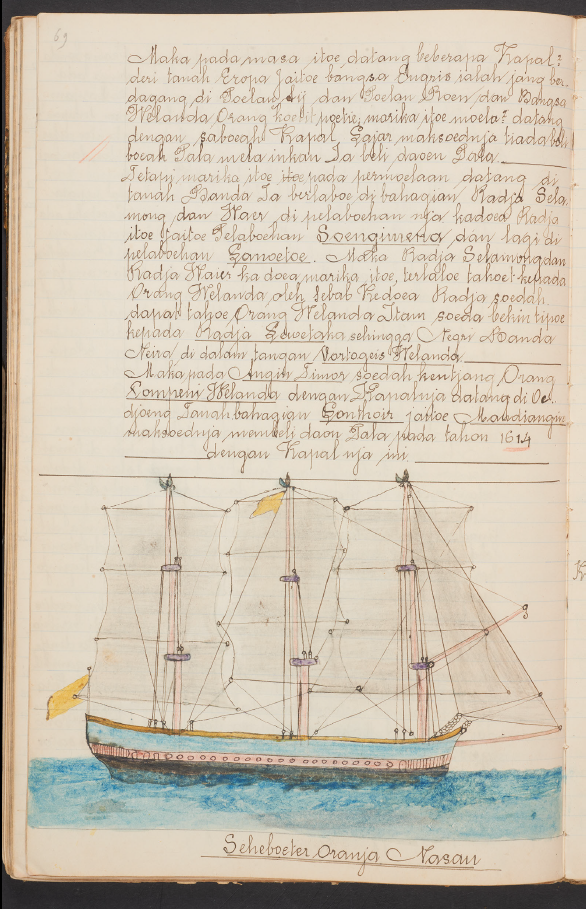 69
Maka pada masa itoe datang beberapa Kapal²
deri tanah Eropa jaitoe bangsa Ingris ialah jang ber-
dagang di Poelau Aij dan Poelau Roen, dan Bangsa
Welanda Orang koelit poetie, marika itoe moela² datang
dengan saboeah Kapal Lajar maksoednja tiada beli
boeah Pala melainkan Ia beli daoen Pala.
Tetapi marika itoe itoe pada permoelaan datang di
tanah Banda Ia berlaboe di bahagian Radja Sela-
mong dan Waer, di pelaboehan nja kadoea Radja
itoe jaitoe Pelaboehan dan lagi di
pelaboehan Lanoetoe. Maka Radja Selamong dan
Radja Waier ka doea marika itoe, terlaloe takoet kapada
Orang Welanda, oleh sebab Kedoea Radja soedah
dapat tahoe, Orang Welanda Itam soeda bekin tipoe
kepada Radja Lewetaka sehingga Negri Banda
Neira, di dalam tangan Portogeis Welanda
Maka pada Angin Timor soedah kentjang Orang
Kompeni Welanda dengan Kapalnja datang di Oe-
djoeng Tanah bahagian Lonthoir jaitoe Mandiangin
maksoednja membeli daon Pala pada tahon 1614
dengan Kapal nja ini
Scheboeter Oranja Nasau